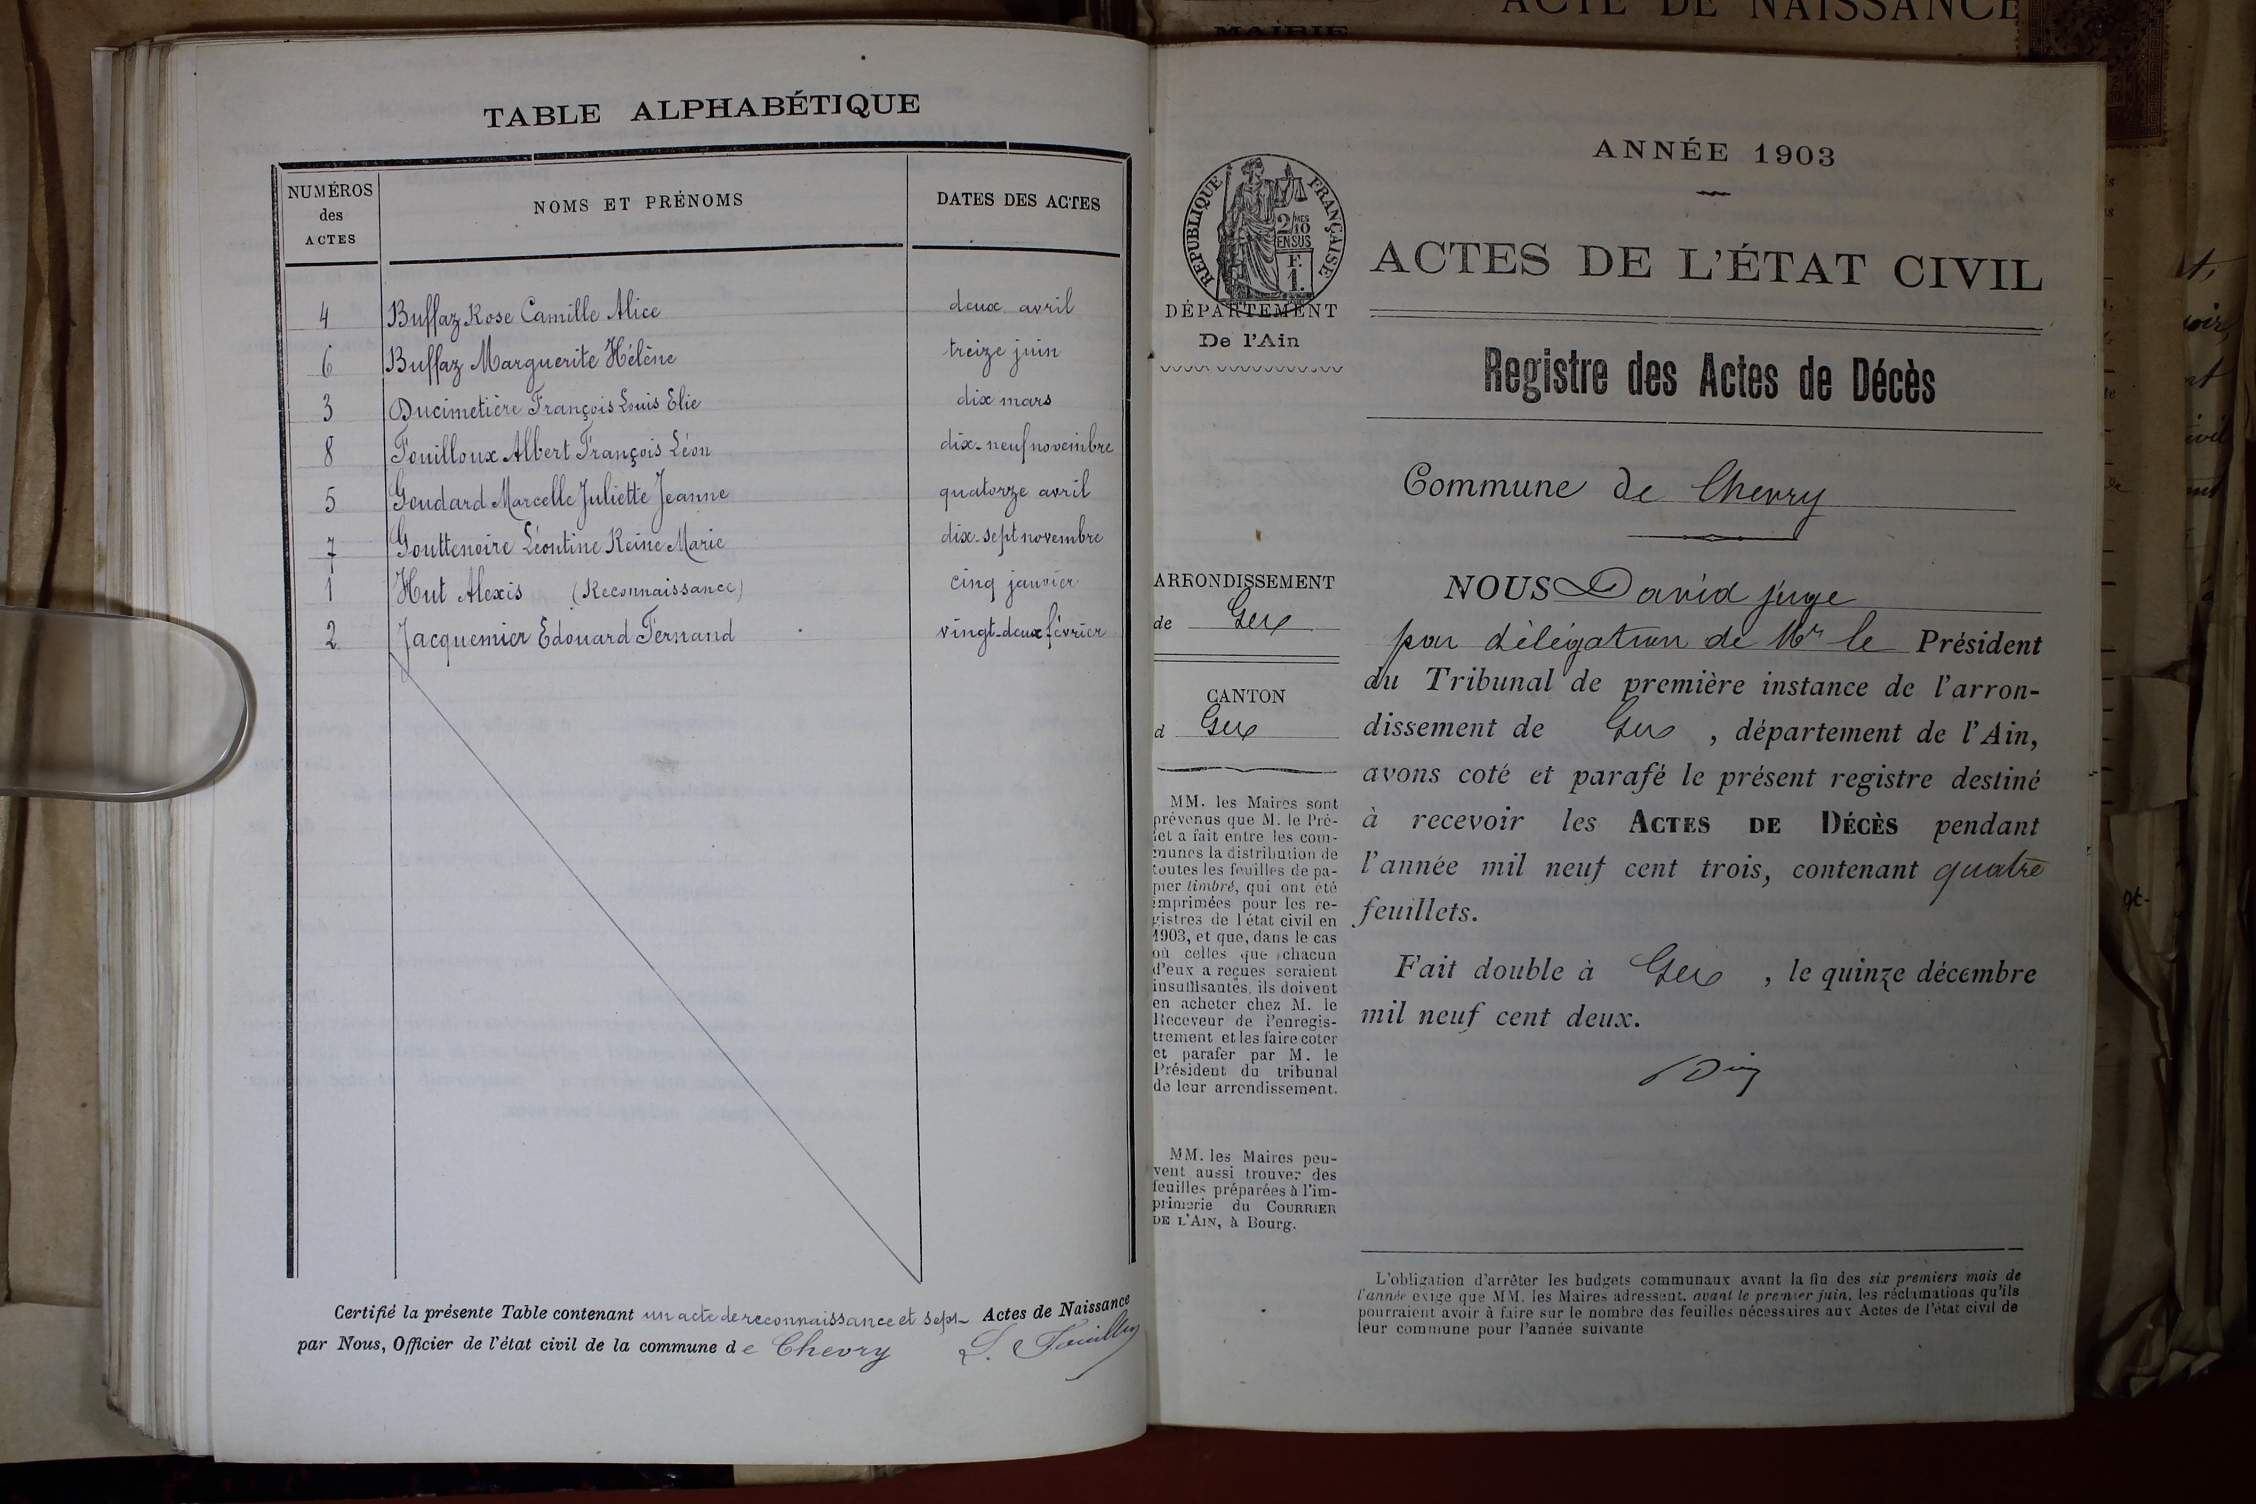 TABLE ALPHABÉTIQUE
NUMÉROS des ACTES
NOMS ET PRÉNOMS
DATES DES ACTES
4 Buffaz Rose Camille Alice deux avril
6 Buffaz Marguerite Hélène treize juin
3 Ducimetière François Louis Elie dix mars
8 Fouilloux Albert François Léon dix-neuf novembre
5 Goudard Marcelle Juliette Jeanne quatorze avril
7 Gouttenoire Léontine Reine Marie dix-sept novembre
1 Hut Alexis (Reconnaissance) cinq janvier
2 Jacquemier Edouard Fernand vingt-deux février
Certifié la présente Table contenant un acte de reconnaissance et sept Actes de Naissance
par Nous, Officier de l'état civil de la commune de Chevry
MAIRIE
ACTE DE NAISSANCE
ANNÉE 1903
RÉPUBLIQUE FRANÇAISE
2/10 MES
EN SUS
F.
1.
DÉPARTEMENT
De l'Ain
ACTES DE L'ÉTAT CIVIL
Registre des Actes de Décès
Commune de Chevry
ARRONDISSEMENT
de Gex
CANTON
d Gex
MM. les Maires sont
prévenus que M. le Pré-
fet a fait entre les com-
munes la distribution de
toutes les feuilles de pa-
pier timbré, qui ont été
imprimées pour les re-
gistres de l'état civil en
1903, et que, dans le cas
où celles que chacun
d'eux a reçues seraient
insuffisantes, ils doivent
en acheter chez M. le
Receveur de l'enregis-
trement et les faire coter
et parafer par M. le
Président du tribunal
de leur arrondissement.
MM. les Maires peu-
vent aussi trouver des
feuilles préparées à l'im-
primerie du COURRIER
DE L'AIN, à Bourg.
NOUS David juge
par délégation de Mr le Président
du Tribunal de première instance de l'arron-
dissement de Gex, département de l'Ain,
avons coté et parafé le présent registre destiné
à recevoir les ACTES DE DÉCÈS pendant
l'année mil neuf cent trois, contenant quatre
feuillets.
Fait double à Gex, le quinze décembre
mil neuf cent deux.
L'obligation d'arrêter les budgets communaux avant la fin des six premiers mois de
l'année exige que MM. les Maires adressent, avant le premier juin, les réclamations qu'ils
pourraient avoir à faire sur le nombre des feuilles nécessaires aux Actes de l'état civil de
leur commune pour l'année suivante